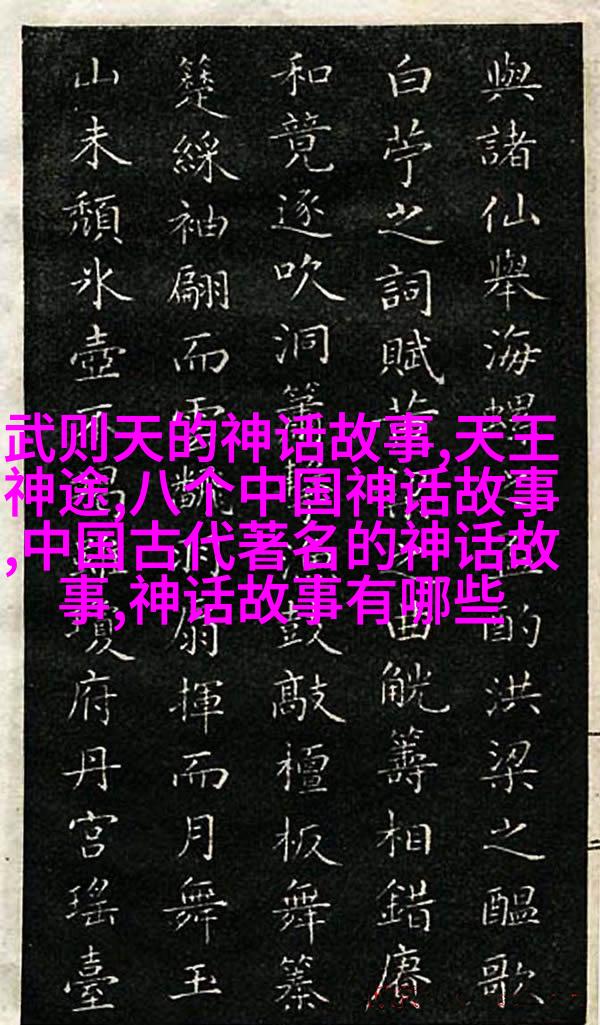 與諸仙舉海螺之
酌洪梁之醞歌
白苧之詞賦
之曲觥籌相錯賡
和竟逐吹洞簫
鼓敲檀板舞纂
簉綵袖翩而雲翻
扇揮而月舞玉
山未頹氷壺
瓊府丹宮瑤臺
武则天的神话故事,天王
神途,八个中国神话故事
,中国古代著名的神话故
事,神话故事有哪些